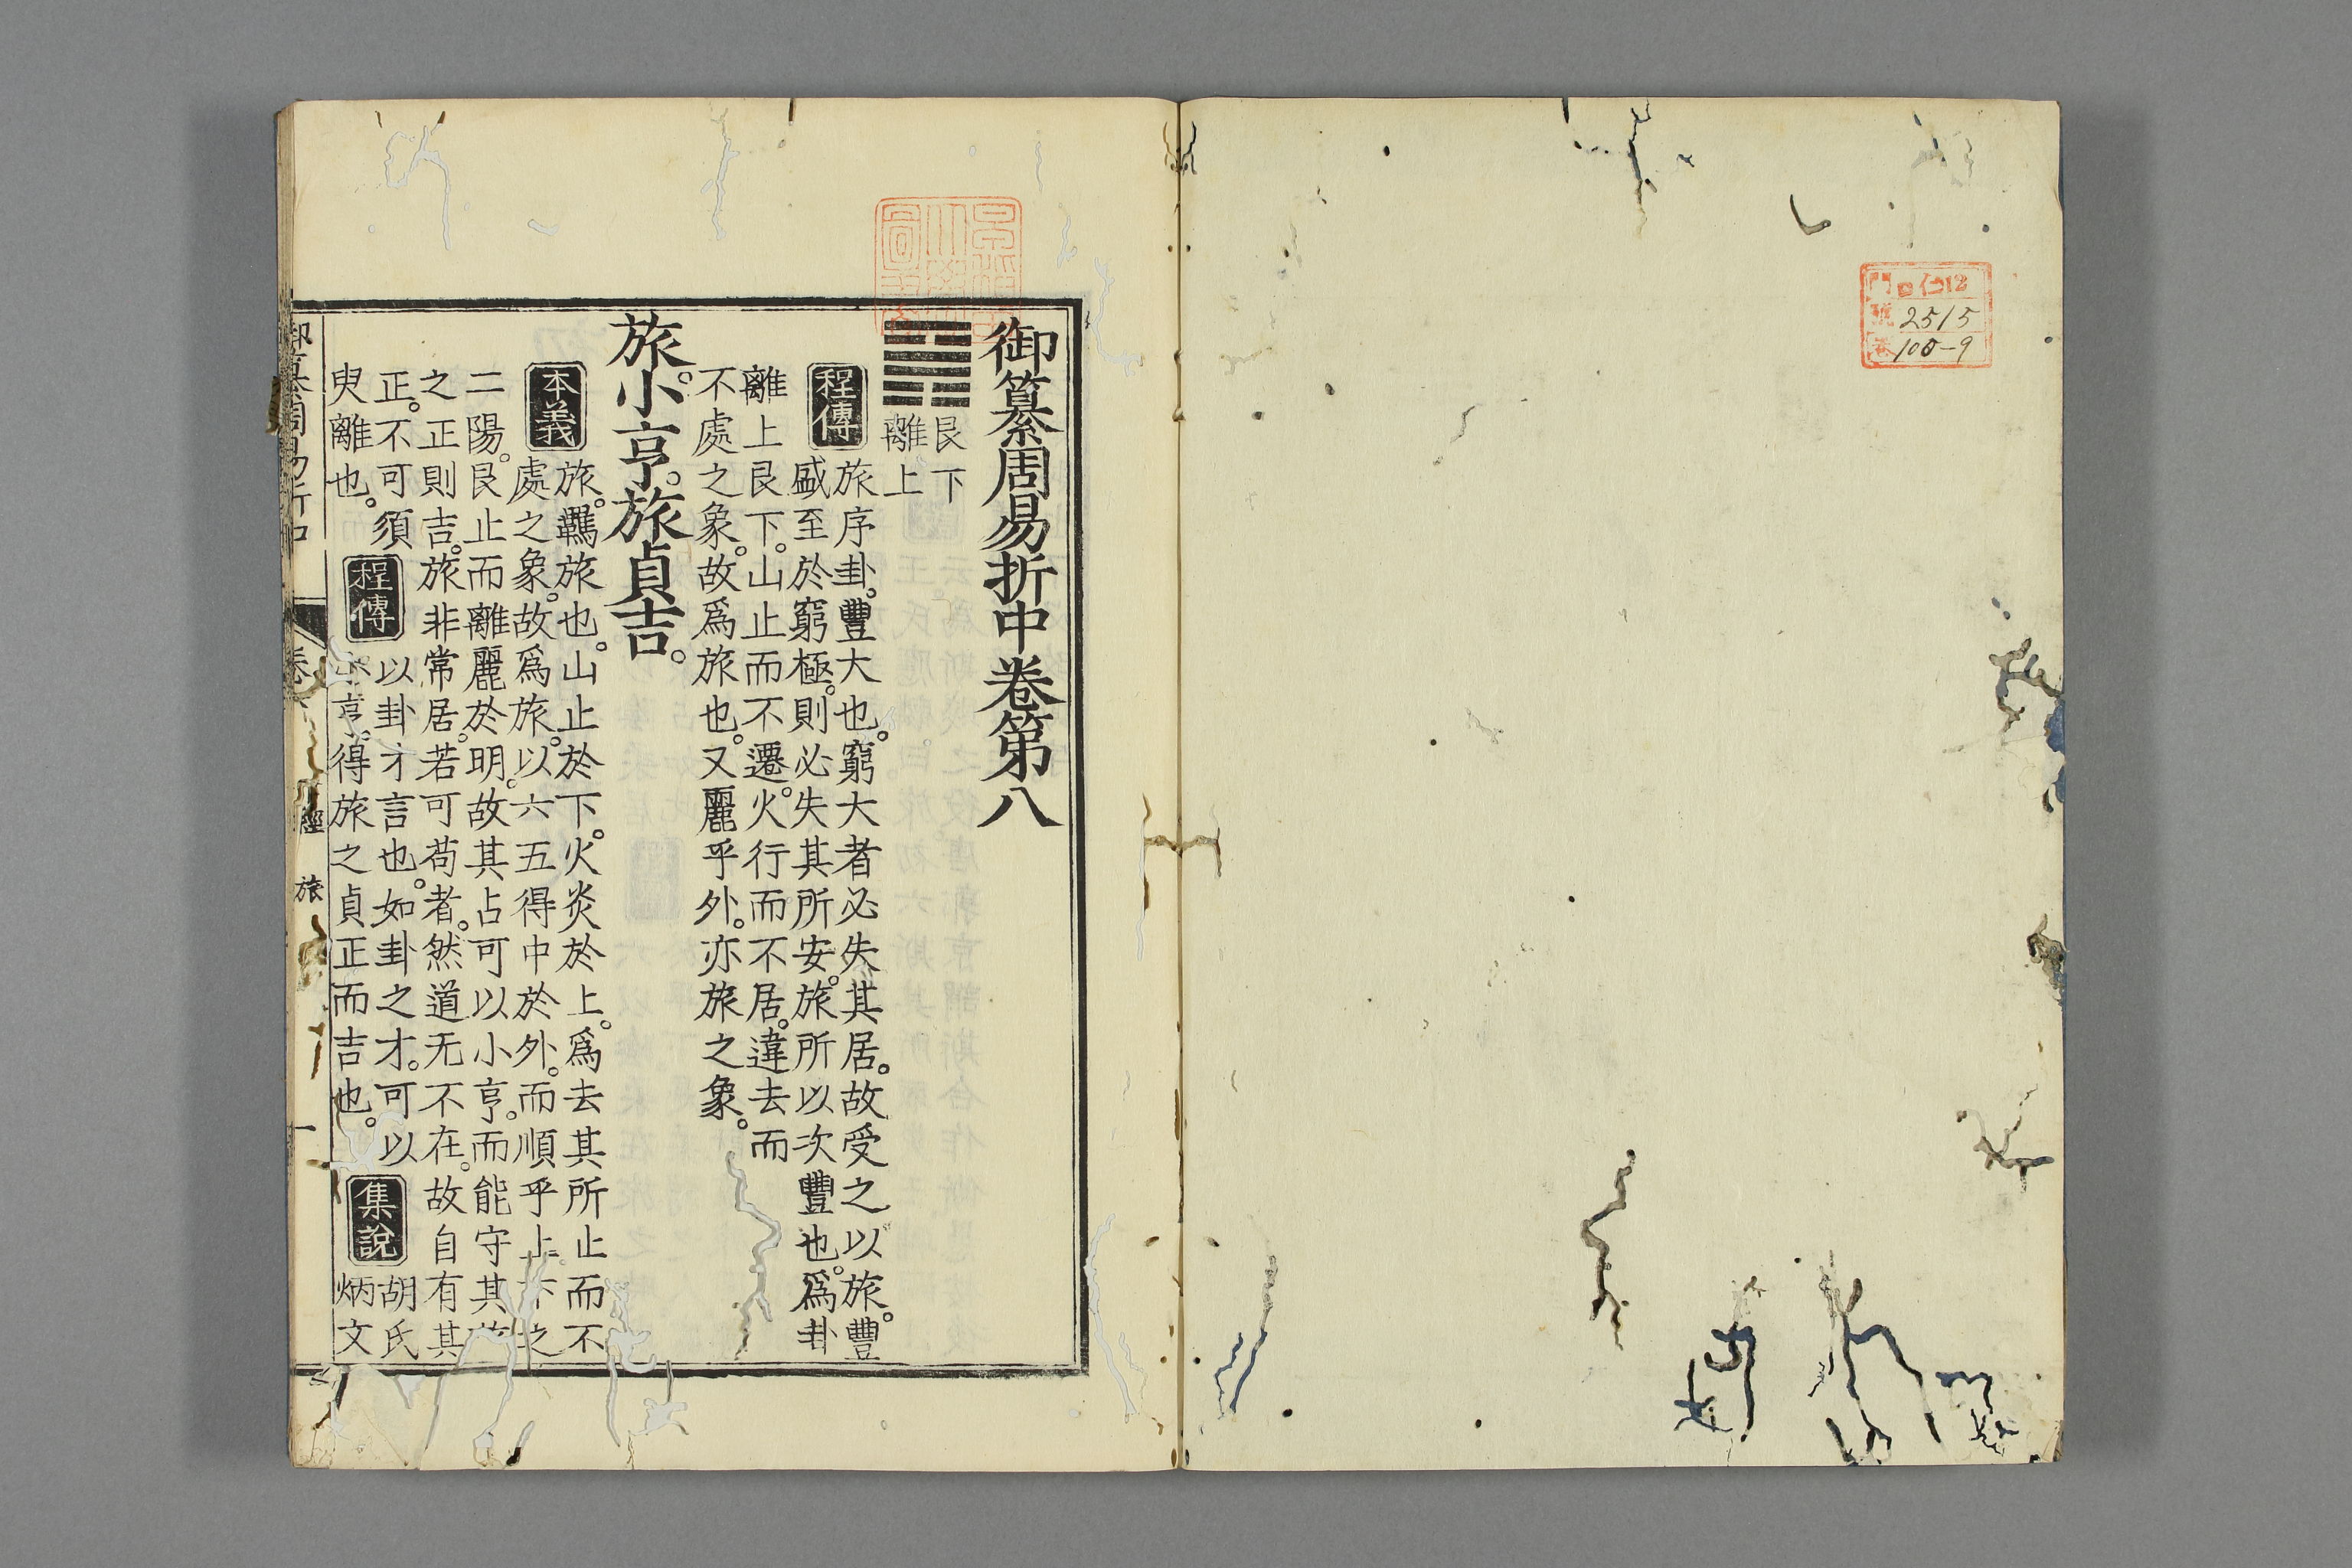 門 仁12
號 2515
卷 100-9
御纂周易折中卷第八
艮下
離上
程傳
旅序卦。豐大也。窮大者必失其居。故受之以旅。豐
盛至於窮極。則必失其所安。旅所以次豐也。爲卦
離上艮下。山止而不遷。火行而不居。違去而
不處之象。故爲旅也。又麗乎外。亦旅之象。
旅。小亨。旅貞吉。
本義
旅。羈旅也。山止於下。火炎於上。爲去其所止而不
處之象。故爲旅。以六五得中於外。而順乎上下之
二陽。艮止而離麗於明。故其占可以小亨。而能守其旅
之正則吉。旅非常居。若可苟者。然道无不在。故自有其
正。不可須
臾離也。
程傳
以卦才言也。如卦之才。可以
小亨。得旅之貞正而吉也。
集說
胡氏
炳文
御纂周易折中
卷
經
旅
一